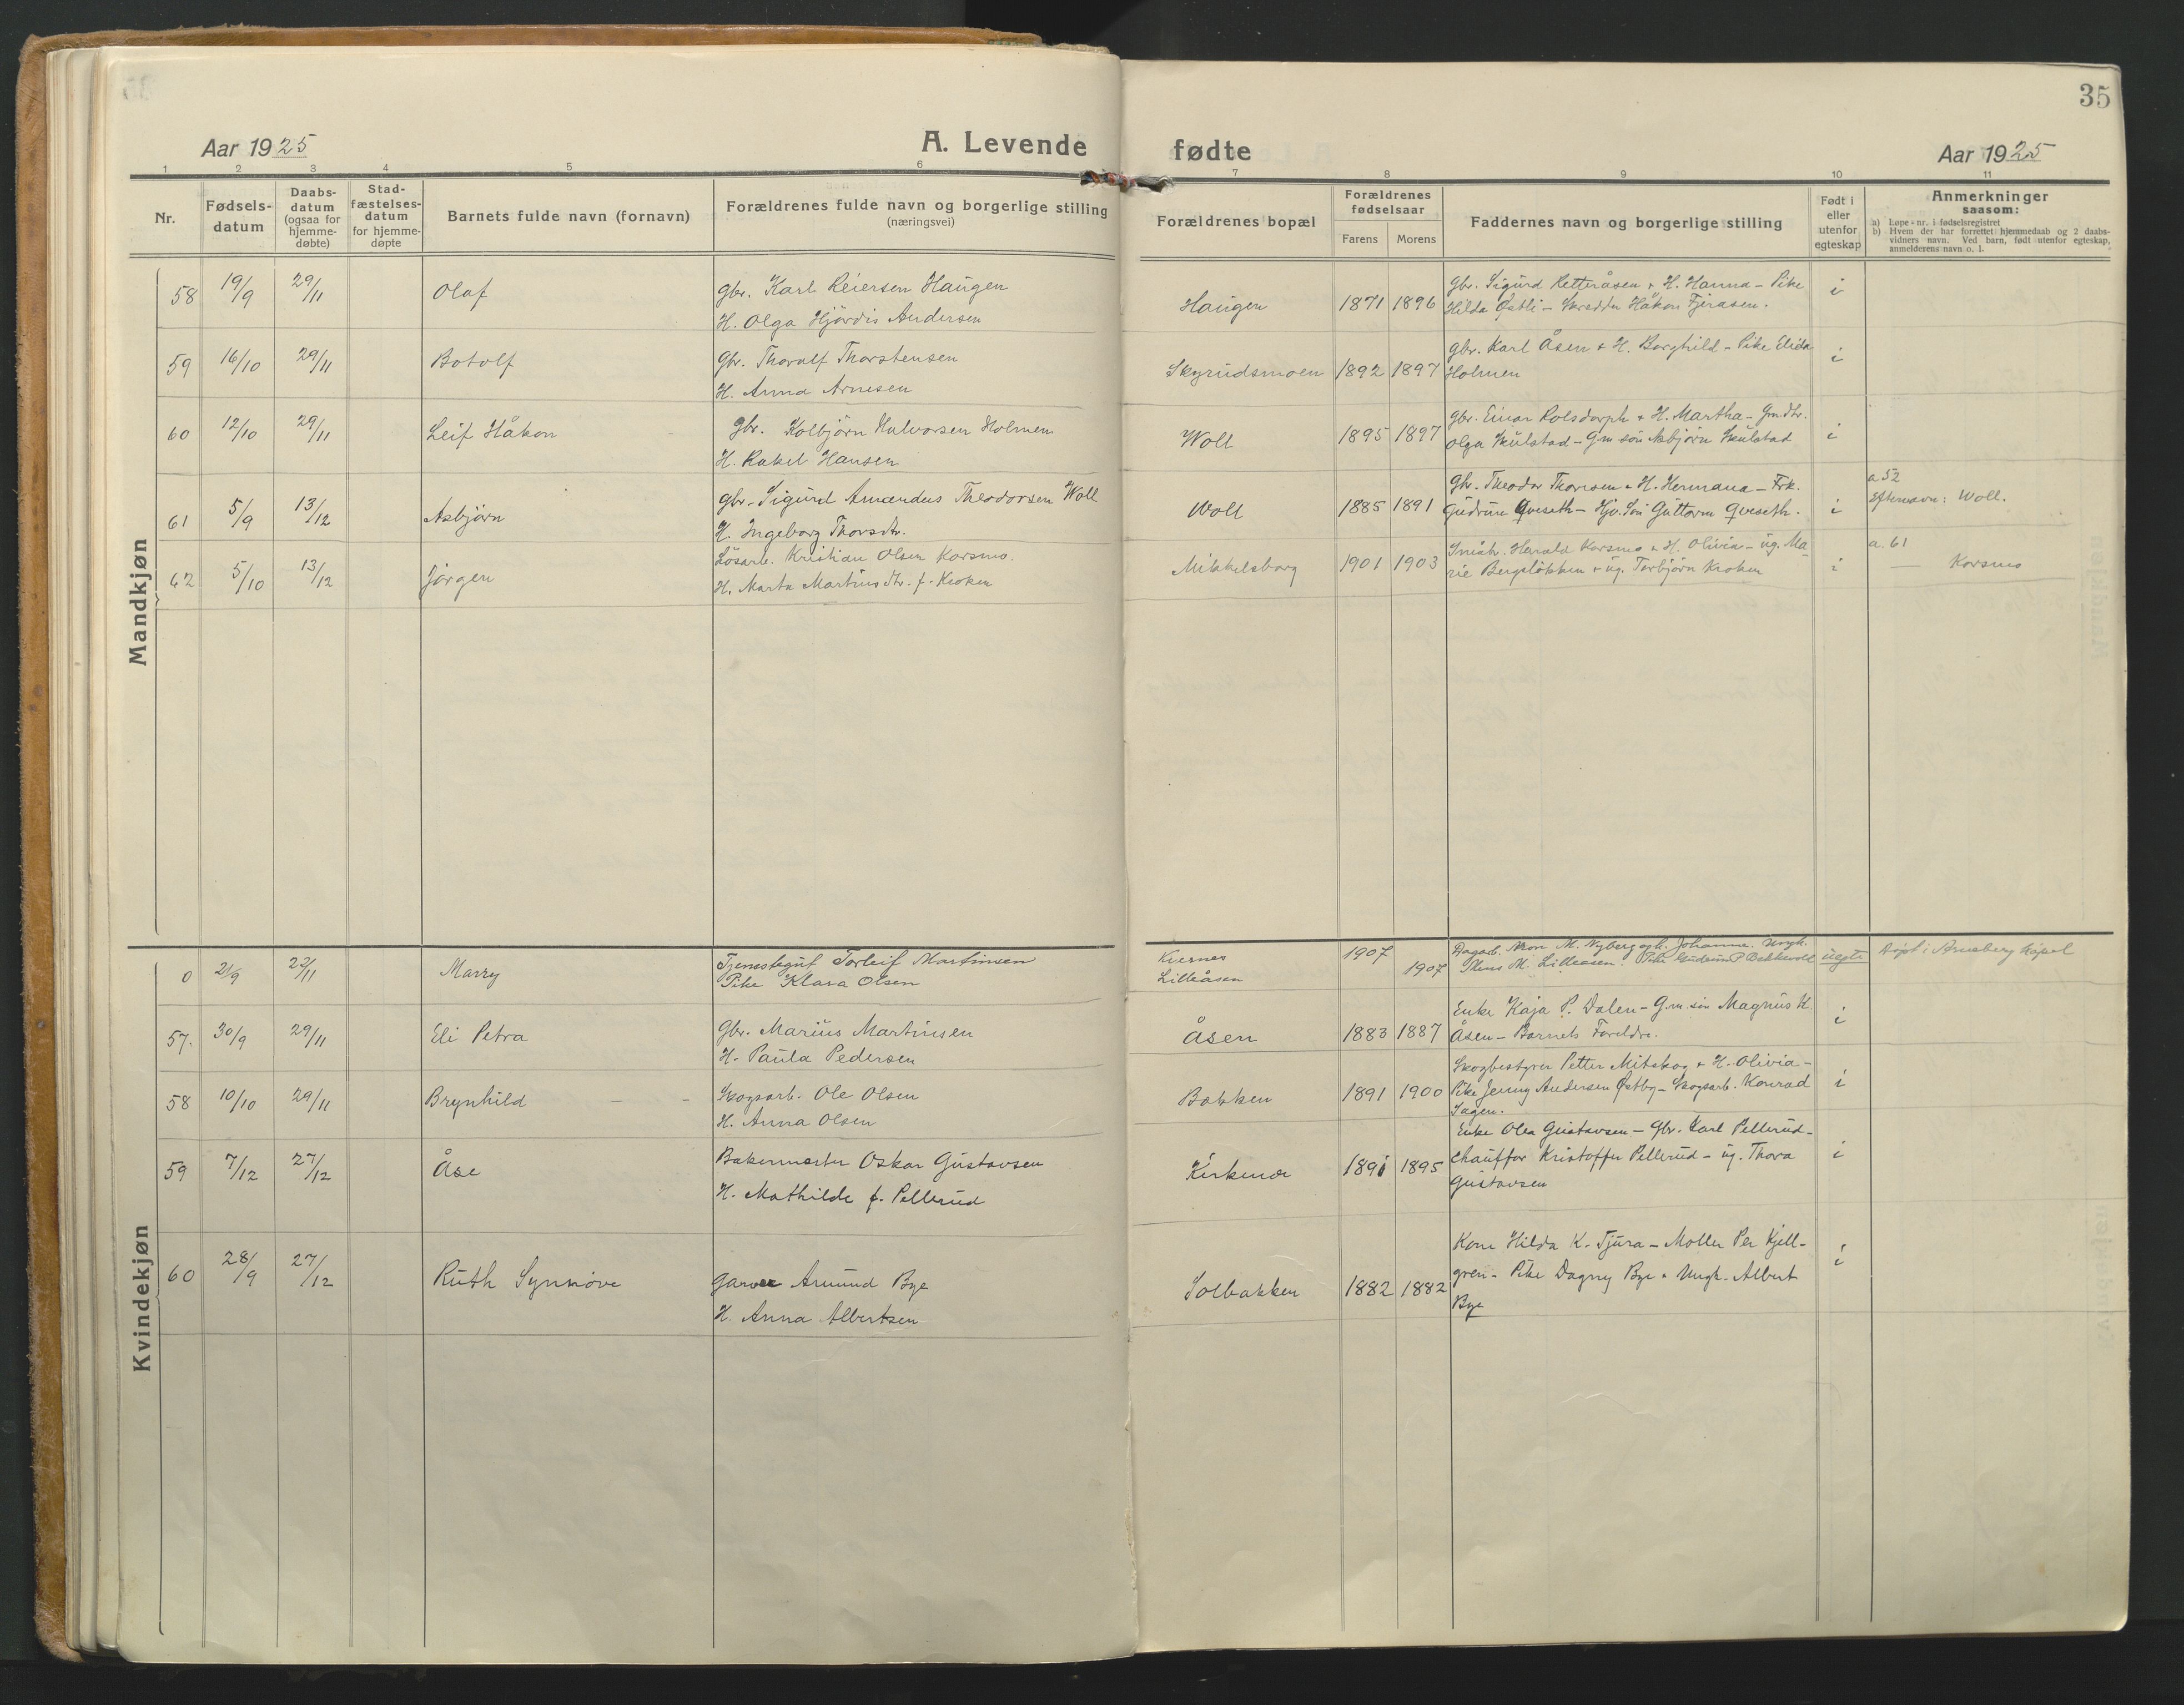 35
Aar 1925
A. Levende
fødte
Aar 1925
1 2 3 4 5 6 7 8 9 10 11
Nr.
Fødsels-
datum
Daabs-
datum
(ogsaa for
hjemme-
døbte)
Stad-
fæstelses-
datum
for hjemme-
døpte
Barnets fulde navn (fornavn)
Forældrenes fulde navn og borgerlige stilling
(næringsvei)
Forældrenes bopæl
Forældrenes
fødselsaar
Farens Morens
Faddernes navn og borgerlige stilling
Født i
eller
utenfor
egteskap
Anmerkninger
saasom:
a) Løpe-nr. i fødselsregistret
b) Hvem der har forrettet hjemmedaab og 2 daabs-
vidners navn. Ved barn, født utenfor egteskap,
anmelderens navn o. l.
Mandkjøn
58 19/9 29/11 Olaf
Gbr. Karl Reiersen Haugen
H. Olga Hjørdis Andersen
Haugen 1871 1896
Gbr. Sigurd Retteråsen + H. Hanna – Pike
Hilda Østli – Skrædder Håkon Fjeråsen.
i
59 16/10 29/11 Botolf
Gbr. Thoralf Thorstensen
H. Anna Arnesen
Skyrudsmoen 1892 1897
Gbr. Karl Åsen + H. Borghild – Pike Elida
Holmen
i
60 12/10 29/11 Leif Håkon
Gbr. Kolbjørn Halvorsen Holmen
H. Rakel Hansen
Woll 1895 1897
Gbr. Einar Rolsdorph + H. Martha – Gm.dtr.
Olga Skulstad – Gm søn Asbjørn Skulstad
i
61 5/9 13/12 Asbjørn
Gbr. Sigurd Amandus Theodorsen Woll
H. Ingeborg Thorsdtr.
Woll 1885 1891
Gbr. Theodor Thoresen + H. Hermana – Frk.
Gudrun Qveseth – Hjv. Søn Guttorm Qveseth.
i
a 52
Efternavn: Woll.
62 5/10 13/12 Jørgen
Løsarb. Kristian Olsen Korsmo.
H. Marta Martinsdtr. f. Kroken
Mikkelsborg 1901 1903
Småbr. Herald Korsmo + H. Olivia – ug. Ma
rie Bergsløkken + ug. Torbjørn Kroken
i
a. 61
Korsmo
Kvindekjøn
0 21/9 22/11 Marry
Tjenestegut Torleif Martinsen
Pike Klara Olsen
Kvernes
Lilleåsen
1907
1907
Dagarb. M. Nyberg og h. Johanne. Ungk.
M. Lilleåsen. Pike Gudrun P. Bekkevold
uegte
Døpt i Arneberg kapel
57. 30/9 29/11 Eli Petra
Gbr. Marius Martinsen
H. Paula Pedersen
Åsen 1883 1887
Enke Kaja P. Dalen – Gm søn Magnus K.
Åsen – Barnets Foreldre.
i
58 10/10 29/11 Brynhild – –
Skogsarb. Ole Olsen
H. Anna Olsen
Bakken 1891 1900
Skogbestyrer Petter Mitskog + H. Olivia –
Pike Jenny Andersen Østby – Skogsarb. Konrad
Sagen.
i
59 7/12 27/12 Åse
Bakermester Oskar Gustavsen
H. Mathilde f. Pellerud
Kirkenær 1891 1895
Enke Olea Gustavsen – Gbr. Karl Pellerud –
Chauffør Kristoffer Pellerud – ug. Thora
Gustavsen
i
60 28/9 27/12 Ruth Synnøve
Garver Amund Bye
H. Anna Albertsen
Solbakken 1882 1882
Kone Hilda K. Tjura – Møller Per Kjell-
gren – Pike Dagny Bye + Ungk. Albert
Bye
i